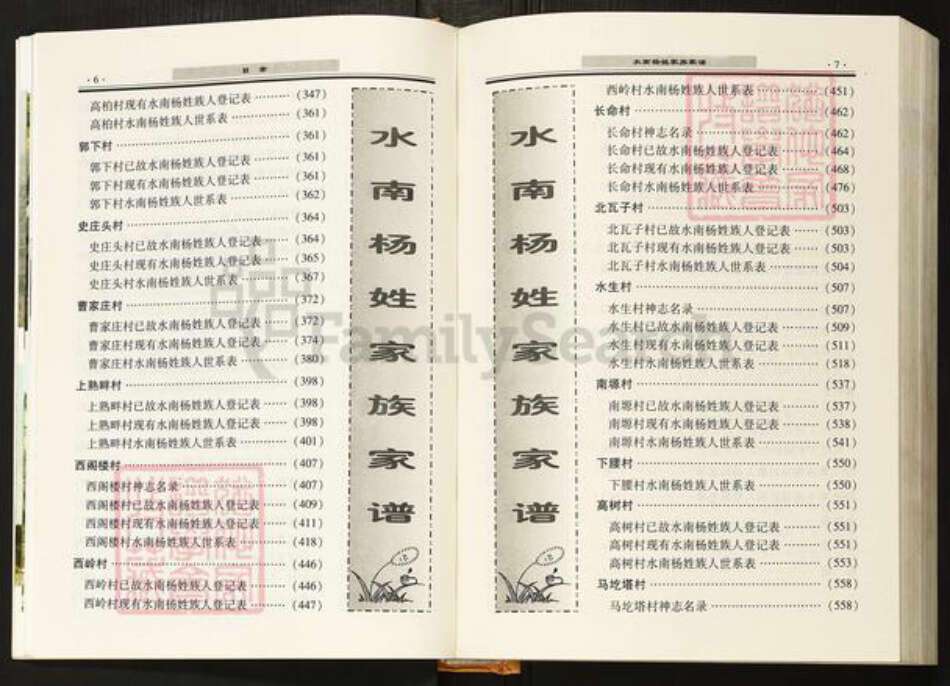 ·6·
目 录
高柏村现有水南杨姓族人登记表 ……… (347)
高柏村水南杨姓族人世系表 ……… (361)
郭下村 ……… (361)
郭下村已故水南杨姓族人登记表 ……… (361)
郭下村现有水南杨姓族人登记表 ……… (361)
郭下村水南杨姓族人世系表 ……… (362)
史庄头村 ……… (364)
史庄头村已故水南杨姓族人登记表 ……… (364)
史庄头村现有水南杨姓族人登记表 ……… (365)
史庄头村水南杨姓族人世系表 ……… (367)
曹家庄村 ……… (372)
曹家庄村已故水南杨姓族人登记表 ……… (372)
曹家庄村现有水南杨姓族人登记表 ……… (374)
曹家庄村水南杨姓族人世系表 ……… (380)
上熟畔村 ……… (398)
上熟畔村已故水南杨姓族人登记表 ……… (398)
上熟畔村现有水南杨姓族人登记表 ……… (398)
上熟畔村水南杨姓族人世系表 ……… (401)
西阁楼村 ……… (407)
西阁楼村神志名录 ……… (407)
西阁楼村已故水南杨姓族人登记表 ……… (409)
西阁楼村现有水南杨姓族人登记表 ……… (411)
西阁楼村水南杨姓族人世系表 ……… (418)
西岭村 ……… (446)
西岭村已故水南杨姓族人登记表 ……… (446)
西岭村现有水南杨姓族人登记表 ……… (447)
水南杨姓家族家谱
水南杨姓家族家谱
水南杨姓家族家谱
·7·
西岭村水南杨姓族人世系表 ……… (451)
长命村 ……… (462)
长命村神志名录 ……… (462)
长命村已故水南杨姓族人登记表 ……… (464)
长命村现有水南杨姓族人登记表 ……… (468)
长命村水南杨姓族人世系表 ……… (476)
北瓦子村 ……… (503)
北瓦子村已故水南杨姓族人登记表 ……… (503)
北瓦子村现有水南杨姓族人登记表 ……… (503)
北瓦子村水南杨姓族人世系表 ……… (504)
水生村 ……… (507)
水生村神志名录 ……… (507)
水生村已故水南杨姓族人登记表 ……… (509)
水生村现有水南杨姓族人登记表 ……… (511)
水生村水南杨姓族人世系表 ……… (518)
南塬村 ……… (537)
南塬村已故水南杨姓族人登记表 ……… (537)
南塬村现有水南杨姓族人登记表 ……… (538)
南塬村水南杨姓族人世系表 ……… (541)
下腰村 ……… (550)
下腰村水南杨姓族人世系表 ……… (550)
高树村 ……… (551)
高树村已故水南杨姓族人登记表 ……… (551)
高树村现有水南杨姓族人登记表 ……… (551)
高树村水南杨姓族人世系表 ……… (553)
马圪塔村 ……… (558)
马圪塔村神志名录 ……… (558)
FamilySearch